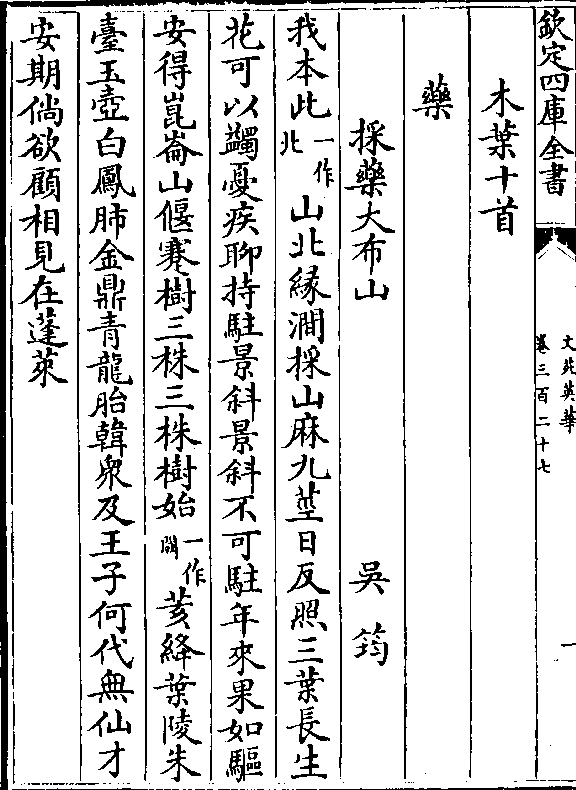 欽定四庫全書
文苑英華
卷三百二十七
一
木葉十首
藥
採藥大布山　吳筠
我本此一作北山北緣澗採山麻九莖日反照三葉長生
花可以蠲憂疾聊持駐景斜景斜不可駐年來果如驅
安得崑崙山偃蹇樹三株三株樹始一作開荑絳葉陵朱
臺玉壺白鳳肺金鼎青龍胎韓衆及王子何代無仙才
安期倘欲顧相見在蓬萊